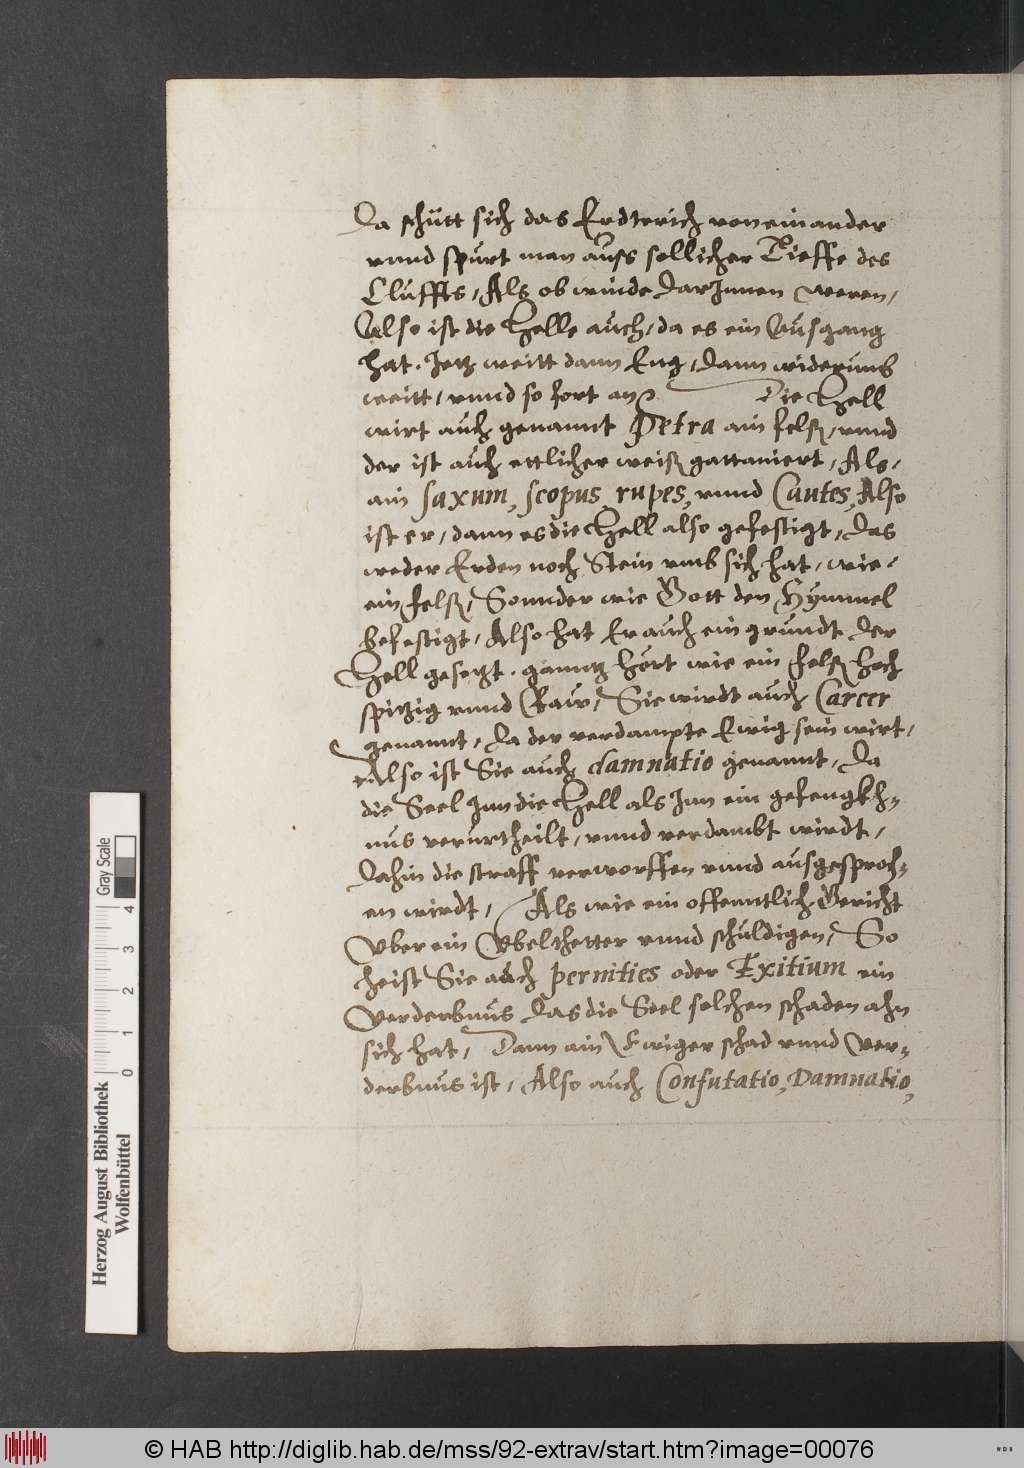 Da schütt sich das Erdterich von einander
vnnd spürt man auss sollicher Tieffe des
Cluffts, Als ob winde darJnnen weren,
Also ist die Helle auch, da es ein Ausgang
hat. Jetz weitt dann Eng, dann widerumb
weitt, vnnd so fort an. Die Hell
wirt auch genannt Petra ain felß, vnnd
der ist auch ettlicher weiß gattaniert, Als,
ain saxum, scopus, rupes, vnnd Cautes, Also
ist er, dann es die Hell also gefestigt, das
weder Erden noch Stein vmb sich hat, wie,
ein felß, Sonnder wie Gott den Hymmel
befestigt, Also hat Er auch ein grundt der
Hell gesetzt. ganntz hört wie ein felß hoch
spitzig vnnd Raw, Sie wirdt auch Carcer
genannt, da der verdampte Ewig sein wirt,
Also ist Sie auch damnatio genannt, da
die Seel Jnn die Hell als Jnn ein gefengkh-
nus verurtheilt, vnnd verdambt wirdt,
dahin die straff verworffen vnnd ausgesproch-
en wirdt, Als wie ein offenntlich Gericht
Vber ein Vbelthetter vnnd schuldigen, So
heist Sie auch pernities oder Exitium ein
Verderbnus das die Seel solchen schaden ahn
sich hat, Dann ain Ewiger schad vnnd Ver-
derbnus ist, Also auch Confutatio, Damnatio,
Gray Scale
0 1 2 3 4
Herzog August Bibliothek
Wolfenbüttel
© HAB http://diglib.hab.de/mss/92-extrav/start.htm?image=00076
WDB